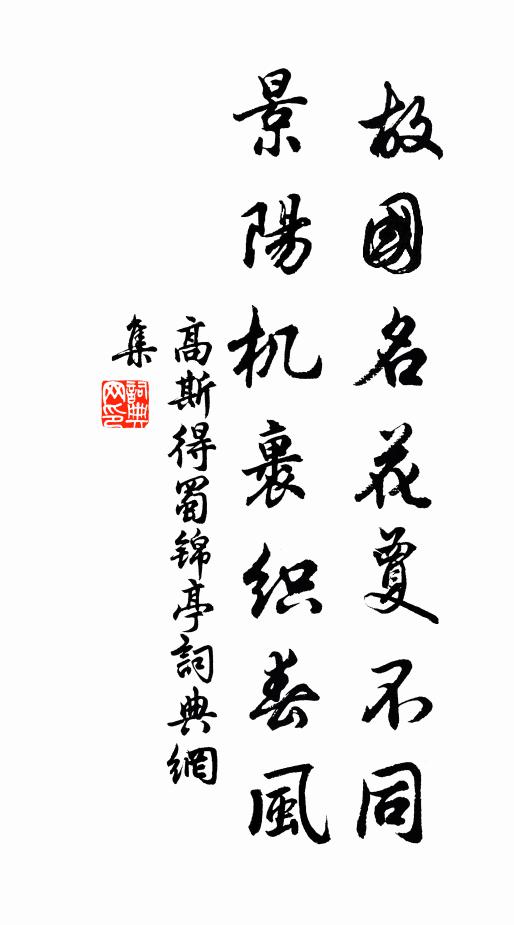 故國名花夐不同
景陽机裹织春風
高斯得蜀锦亭詞典網
集
詞典网印